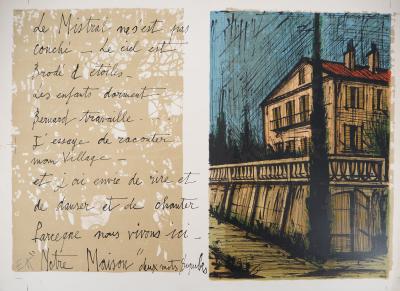 Le Mistral ne s'est pas
couché _ Le ciel est
Brodé d étoiles _
Les enfants dorment
Bernard travaille _ . _
J'essaye de raconter
mon Village _
et j ai envie de rire et
de danser et de chanter
parceque nous vivons ici _
"Notre Maison" deux mots